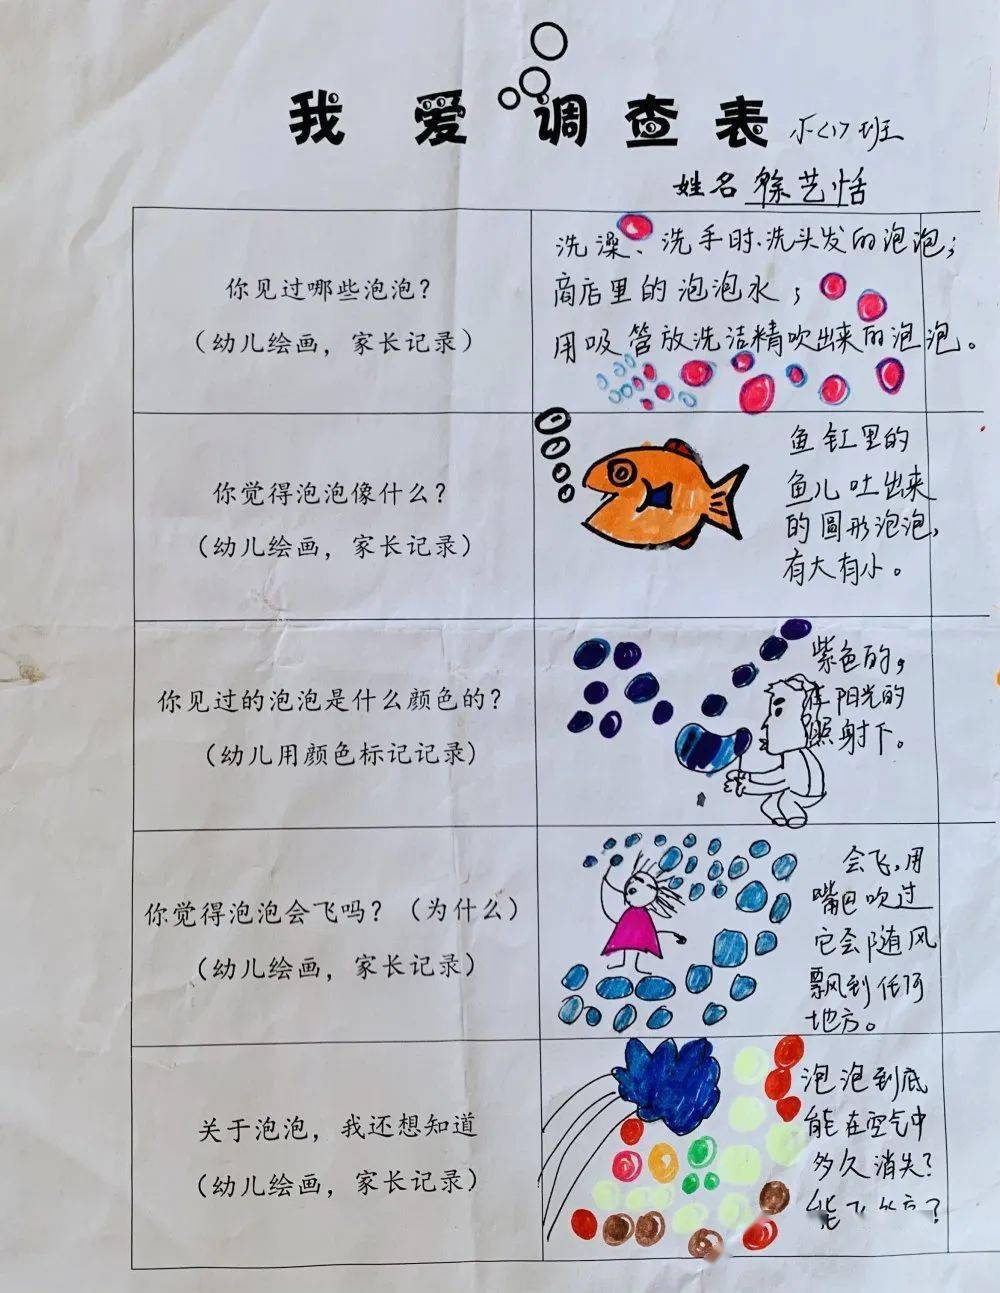 我 爱 调 查 表 小(1)班
姓名 徐艺恬
你见过哪些泡泡？
（幼儿绘画，家长记录）
洗澡、洗手时、洗头发的泡泡；
商店里的泡泡水；
用吸管放洗洁精吹出来的泡泡。
你觉得泡泡像什么？
（幼儿绘画，家长记录）
鱼缸里的
鱼儿吐出来
的圆形泡泡，
有大有小。
你见过的泡泡是什么颜色的？
（幼儿用颜色标记记录）
紫色的，
在阳光的
照射下。
你觉得泡泡会飞吗？（为什么）
（幼儿绘画，家长记录）
会飞，用
嘴巴吹过
它会随风
飘到任何
地方。
关于泡泡，我还想知道
（幼儿绘画，家长记录）
泡泡到底
能在空气中
多久消失？
能